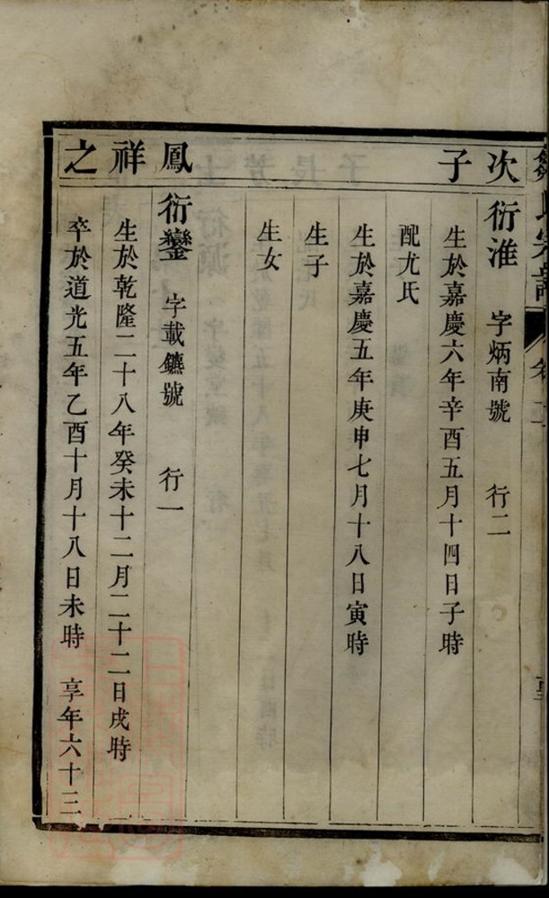 氏宗譜
卷
次子
衍淮 字炳南號 行二
生於嘉慶六年辛酉五月十四日子時
配尤氏
生於嘉慶五年庚申七月十八日寅時
生子
生女
鳳祥之
衍鑾 字載鑣號 行一
生於乾隆二十八年癸未十二月二十二日戌時
卒於道光五年乙酉十月十八日未時 享年六十三